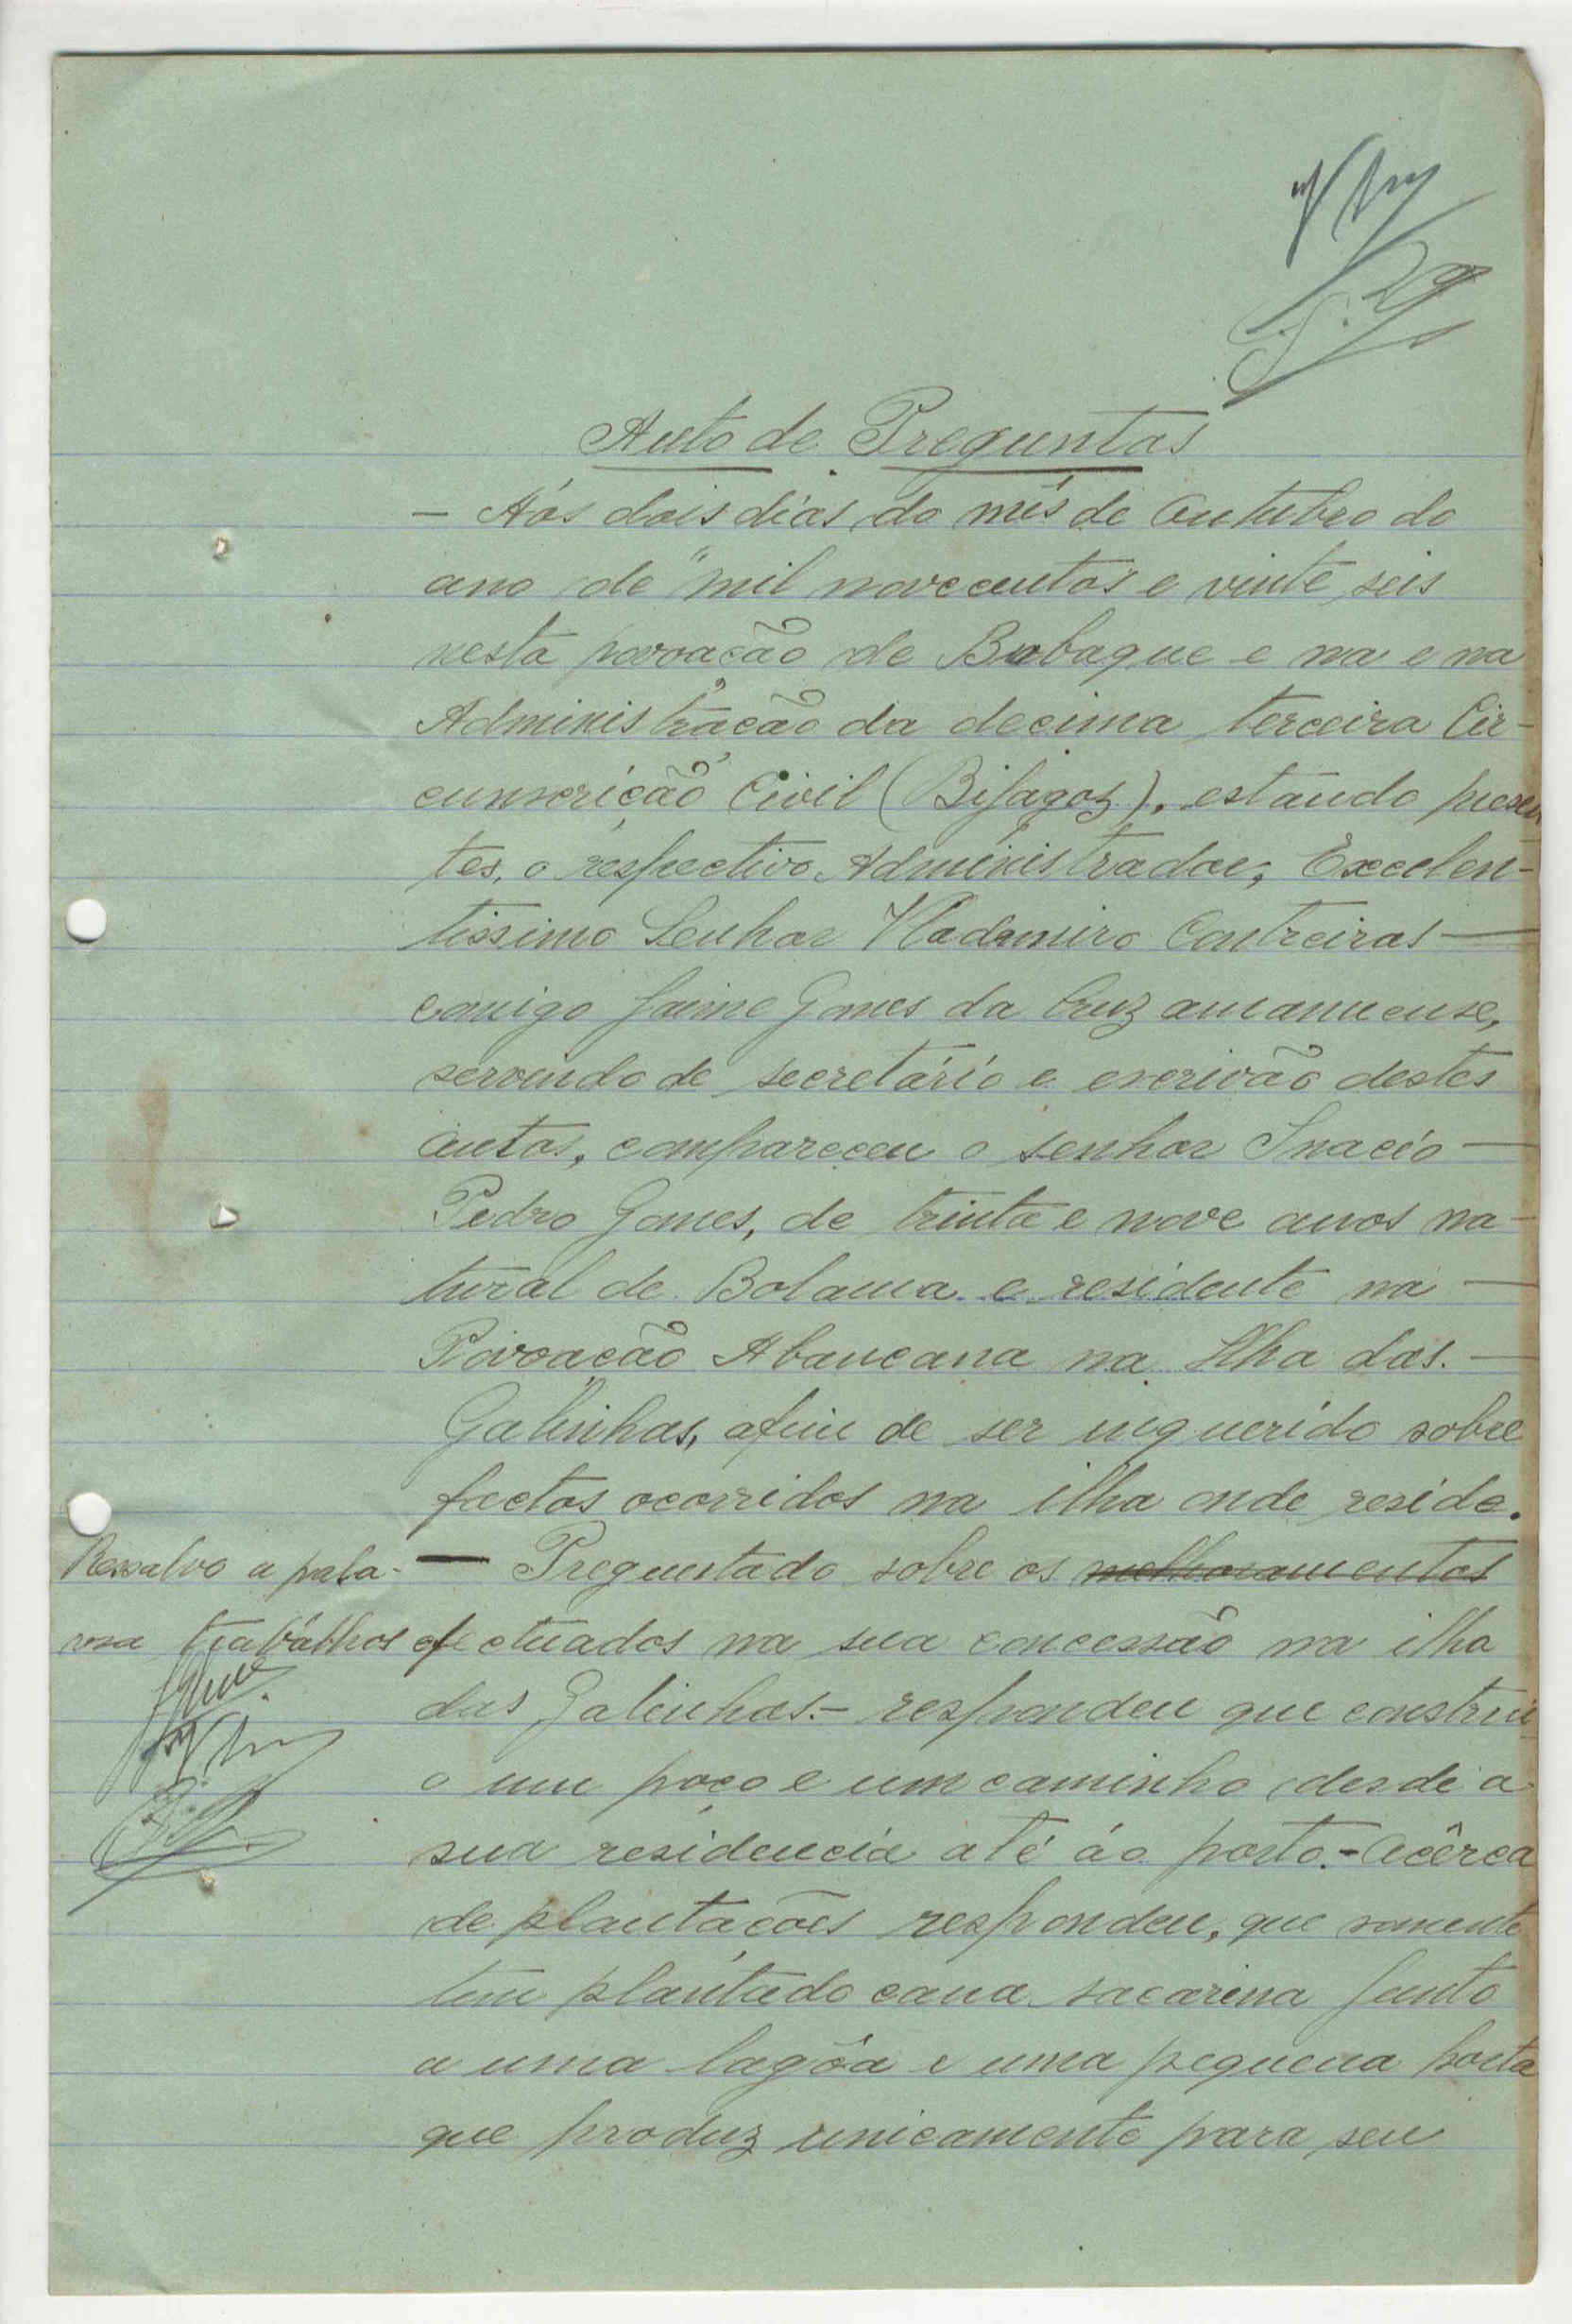 29
Auto de Preguntas
- Aós dois dias do mês de Outubro do
ano de mil novecentos e vinte seis
nesta povoação de Bubaque e na e na
Administração da decima terceira Cir-
cunscrição Civil (Bijagoz), estando presen
tes, o respectivo Administrador, Excelen-
tissimo Senhor Vladimiro Contreiras —
comigo Jaime Gomes da Cruz amanuense,
servindo de secretário e escrivão destes
autos, compareceu o senhor Inacio —
Pedro Gomes, de trinta e nove anos na-
tural de Bolama e residente na —
Povoação Abancana na Ilha das. —
Galinhas, afim de ser inquerido sobre
factos ocorridos na ilha onde reside.
— Preguntado sobre os melhoramentos
Ressalvo a pala-
vra trabálhos
efectuados na sua concessão na ilha
das Galinhas.- respondeu que constrúi
o um poço e um caminho desde a
sua residencia até áo porto.- Acêrca
de plantações respondeu, que somente
tem plantado cana sacarina junto
a uma lagôa e uma pequena horta
que produz unicamente para seu